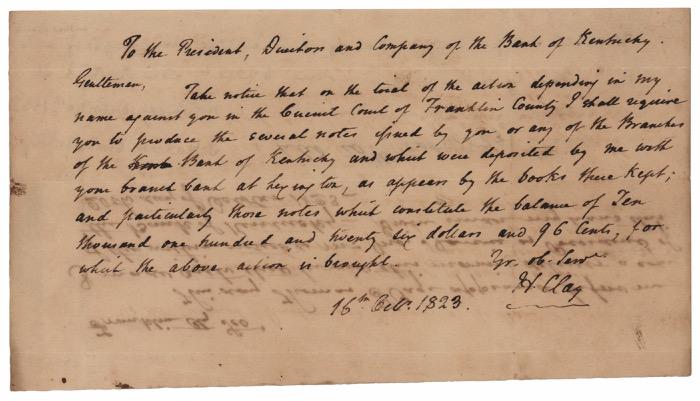 To the President, Directors and Company of the Bank of Kentucky.
Gentlemen,
Take notice that on the trial of the action depending in my
name against you in the Circuit Court of Franklin County I shall require
you to produce the several notes issued by you or any of the Branches
of the Bank of Kentucky and which were deposited by me with
your branch bank at Lexington, as appears by the books there kept;
and particularly those notes which constitute the balance of Ten
thousand one hundred and twenty six dollars and 96 Cents, for
which the above action is brought.
Yr. ob. Serv.
H. Clay
16th Oct. 1823.